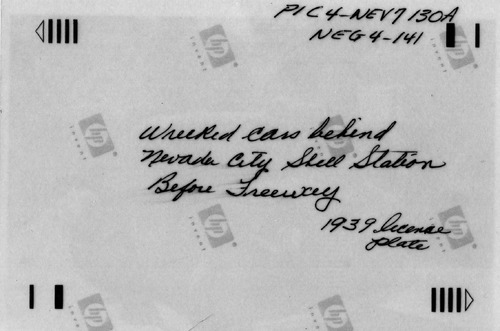 PIC4-NEV7 130A
NEG4-141
Wrecked cars behind
Nevada City Shell Station
Before Freeway
1939 license
plate
hp
hp
hp
hp
hp
hp
hp